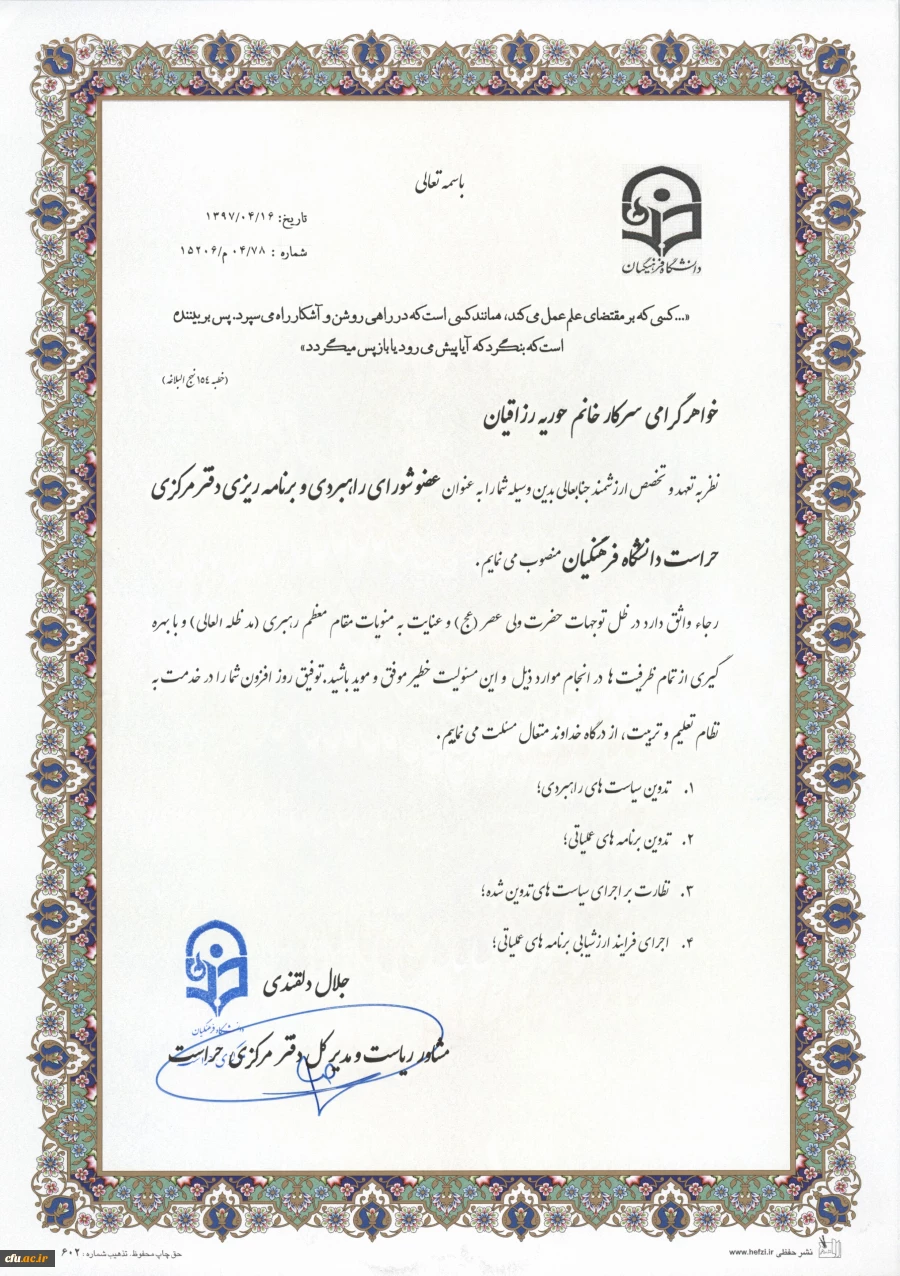 باسمه تعالی
دانشگاه فرهنگیان
تاریخ: ۱۳۹۷/۰۴/۱۶
شماره : ۰۴/۷۸ م/۱۵۲۰۶
«...کسی که بر مقتضای علم عمل می کند، همانند کسی است که در راهی روشن و آشکار راه می سپرد. پس بر بیننده
است که بنگرد که آیا پیش می رود یا باز پس میگردد»
(خطبه ۱۵۴ نهج البلاغه)
خواهر گرامی سرکار خانم حوریه رزاقیان
نظر به تعهد و تخصص ارزشمند جنابعالی بدین وسیله شما را به عنوان عضو شورای راهبردی و برنامه ریزی دفتر مرکزی
حراست دانشگاه فرهنگیان منصوب می نمایم.
رجاء واثق دارد در ظل توجهات حضرت ولی عصر (عج) و عنایت به منویات مقام معظم رهبری (مد ظله العالی) و با بهره
گیری از تمام ظرفیت ها در انجام موارد ذیل و این مسئولیت خطیر موفق و موید باشید. توفیق روز افزون شما را در خدمت به
نظام تعلیم و تربیت، از درگاه خداوند متعال مسئلت می نمایم.
۱. تدوین سیاست های راهبردی؛
۲. تدوین برنامه های عملیاتی؛
۳. نظارت بر اجرای سیاست های تدوین شده؛
۴. اجرای فرایند ارزشیابی برنامه های عملیاتی؛
جلال دلقندی
دانشگاه فرهنگیان
مشاور ریاست و مدیر کل دفتر مرکزی حراست
نشر حفظی www.hefzi.ir
حق چاپ محفوظ. تذهیب شماره: ۶۰۲
cfu.ac.ir